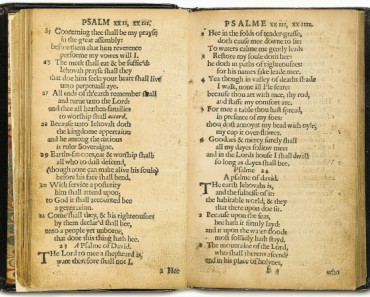 PSALM xxii, xxiii.
25 Concerning thee shall be my prayse
in the great assembly:
before them that him reverence
performe my vowes will I.
26 The meek shall eat & be suffic'd
Iehovah prayse shall they
that doe him seek: your heart shall live
unto perpetuall aye.
27 All ends of th'earth remember shall
and turne unto the Lord
and thee all heathen-families
to worship shall accord.
28 Because unto Iehovah doth
the kingdome appertaine
and he among the nations
is ruler Soveraigne.
29 Earth's-
eat & worship shall:
all who to dust descend,
(though none can make alive his soule)
before his face shall bend.
30 With service a posterity
him shall attend upon;
to God it shall accounted bee
a generation.
31 Come shall they, & his righteousnes
by them declar'd shall bee,
unto a people yet unborne,
that done this thing hath hee.
23 A Psalme of David.
The Lord to mee a shepheard is,
want therefore shall not I.
2 Hee
PSALME xxiii, xxiiii.
2 Hee in the folds of tender-grasse,
doth cause mee downe to lie:
To waters calme me gently leads
3 Restore my soule doth hee:
he doth in paths of righteousnes
for his names sake leade mee.
4 Yea though in valley of deaths shade
I walk, none ill I'le feare:
because thou art with mee, thy rod,
and staffe my comfort are.
5 For mee a table thou hast spread,
in presence of my foes:
thou dost annoynt my head with oyle,
my cup it over-flowes.
6 Goodnes & mercy surely shall
all my dayes follow mee:
and in the Lords house I shall dwell
so long as dayes shall bee.
Psalme 24
A psalme of david.
The earth Iehovah's is,
and the fulnesse of it:
the habitable world, & they
that there upon doe sit.
2 Because upon the seas,
hee hath it firmly layd:
and it upon the water-floods
most sollidly hath stayd.
3 The mountaine of the Lord,
who shall thereto ascend?
and in his place of holynes,
who